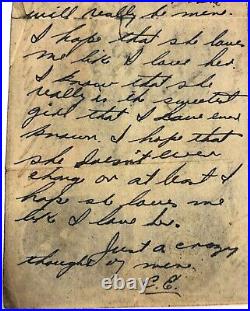 will really be mine.
I hope that she loves
me like I love her.
I know that she
really is the sweetest
girl that I have ever
known. I hope that
she doesn't ever
chang or at least I
hope sh loves me
like I love her.
Just a crazy
thought of mine.
E.E.